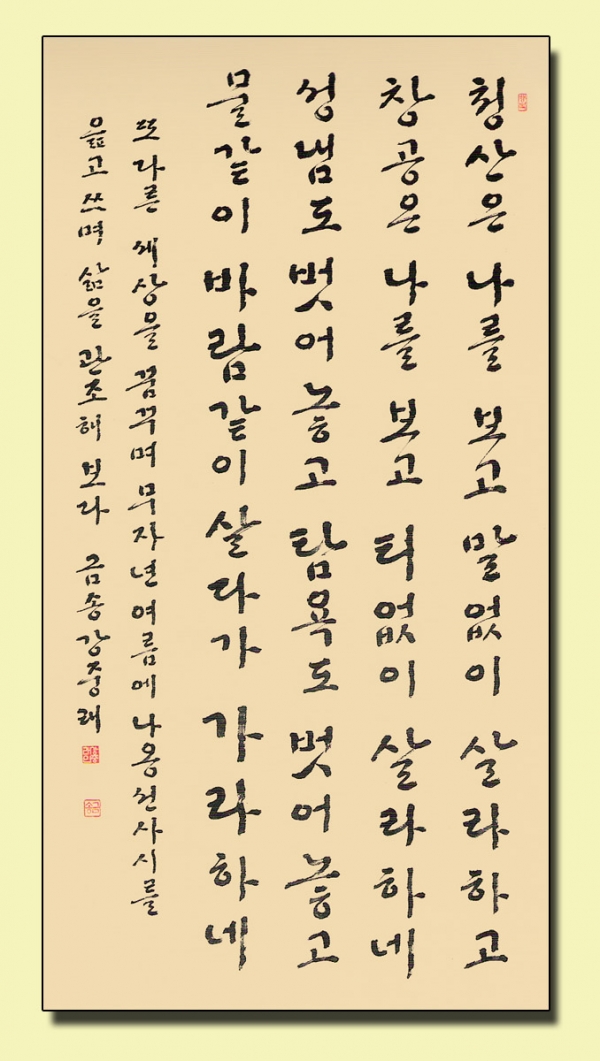 청산은 나를 보고 말없이 살라하고
창공은 나를 보고 티없이 살라하네
성냄도 벗어놓고 탐욕도 벗어놓고
물같이 바람같이 살다가 가라하네
또 다른 세상을 꿈꾸며 무자년 여름에 나옹선사 시를
읊고 쓰며 삶을 관조해 보다 금송 강중래